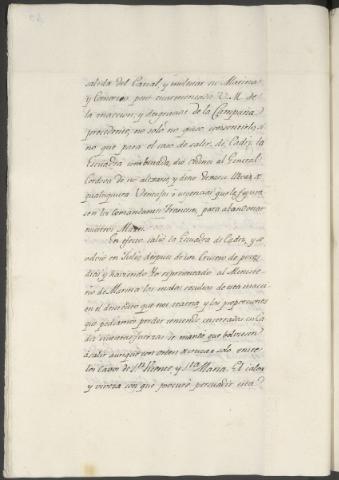 salida del Canal, y molestar su Marina
y Comercio; pero escarmentado V. M. de
la inaccion, y desgracias de la Campaña
precedente, no solo no quiso consentirlo, si
no que para el caso de salir de Cadiz la
Escuadra combinada, dio orden al General
Cordova de no alexarse, y dexarse llevar a
qualquiera Ventajas ó urgencias que le figura
sen los Comandantes Franceses, para abandonar
nuestros Mares.
En efecto salió la Escuadra de Cadiz, y se
volvió en Julio despues de un Crucero de pocos
dias y haviendo Yo representado al Ministe
rio de Marina las malas resultas de esta inacci
on el descredito que nos traeria y las proporciones
que podiamos perder teniendo encerradas en Ca
diz nuestras fuerzas se mandó que bolviesen
á salir aunque con orden de cruzar solo entre
los Cavos de Sn. Vicente, y Sta. Maria. El calor
y viveza con que procuré persuadir esta